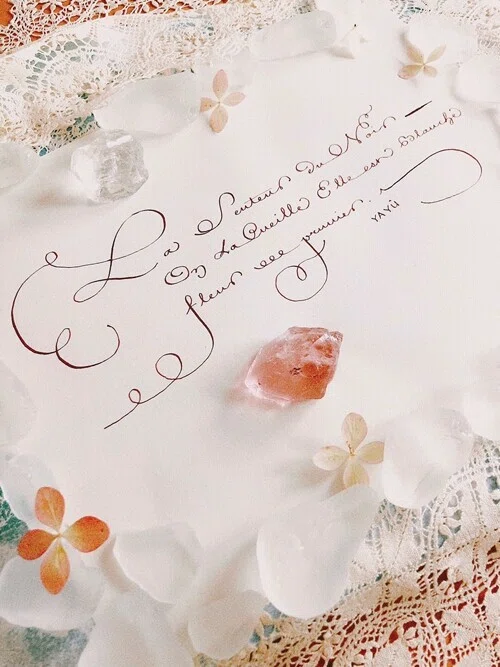 La Senteur Du Noir —
On La Cueille Elle est blanche
fleur de prunier.
YAYÜ